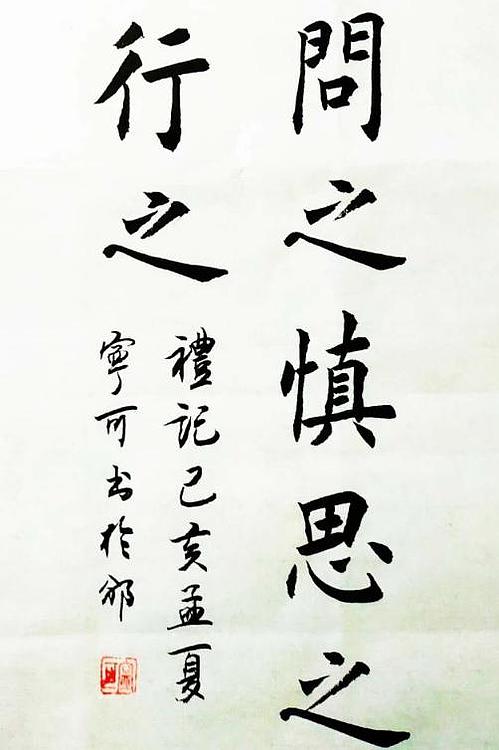 問之慎思之
行之
禮記己亥孟夏
寧可书於